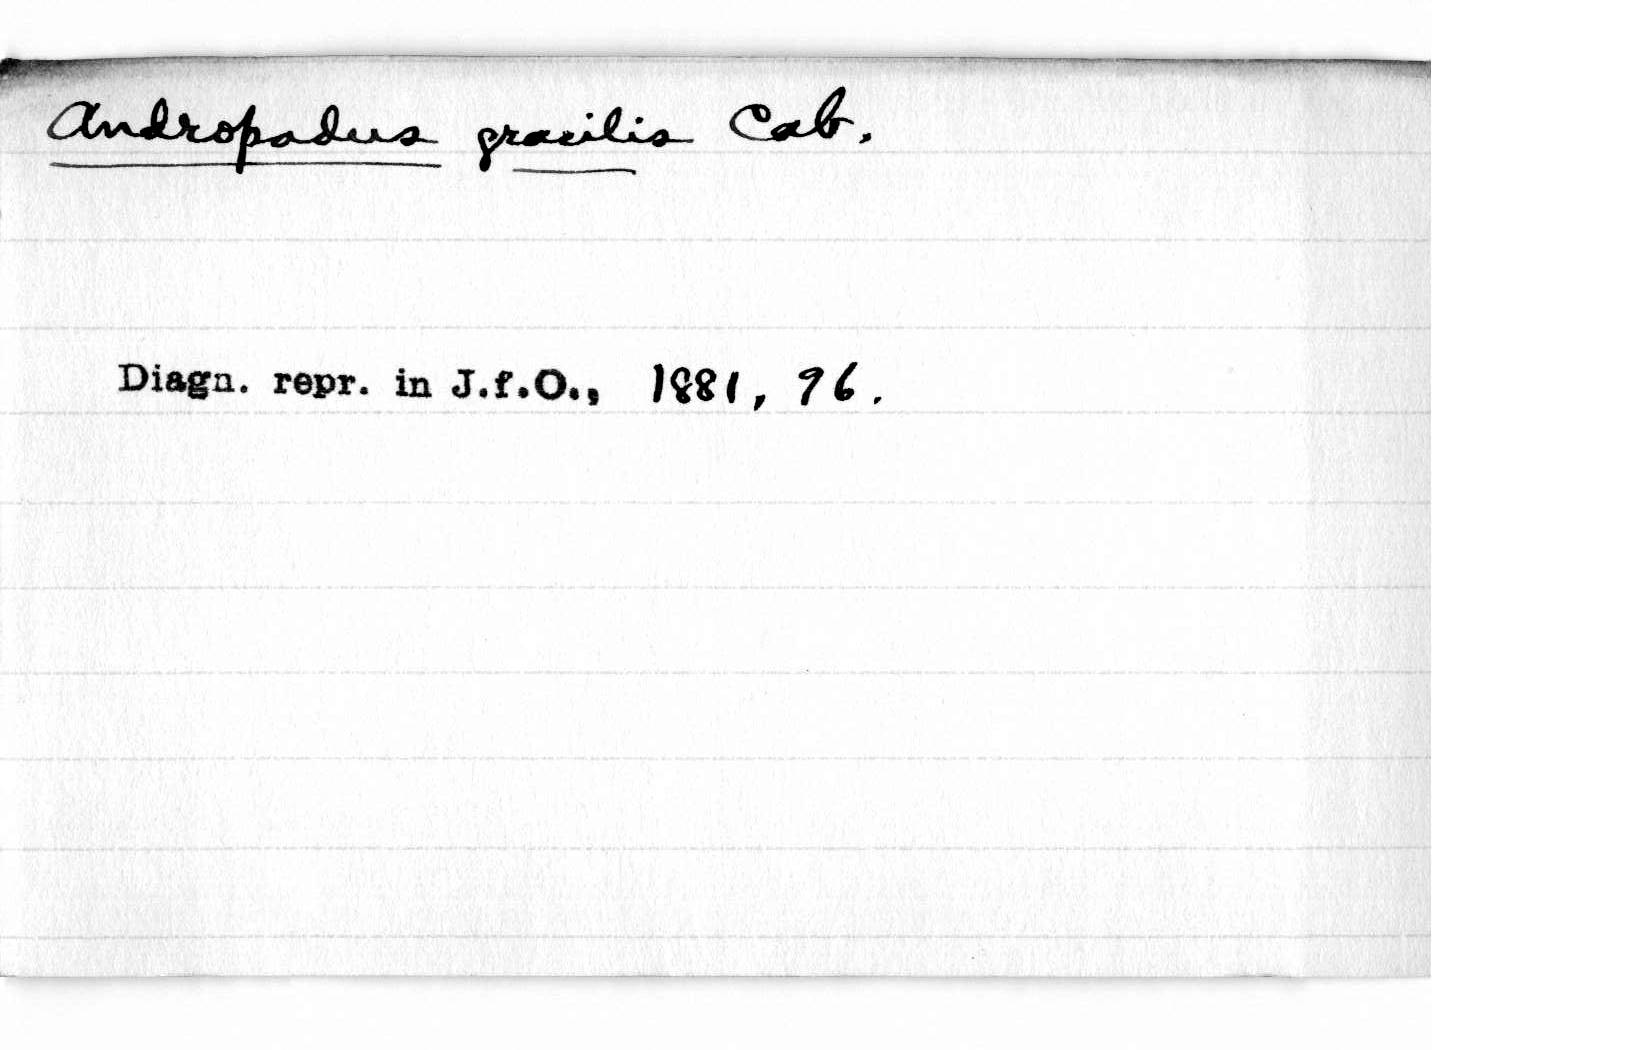 Andropadus gracilis Cab.
Diagn. repr. in J.f.O., 1881, 96.